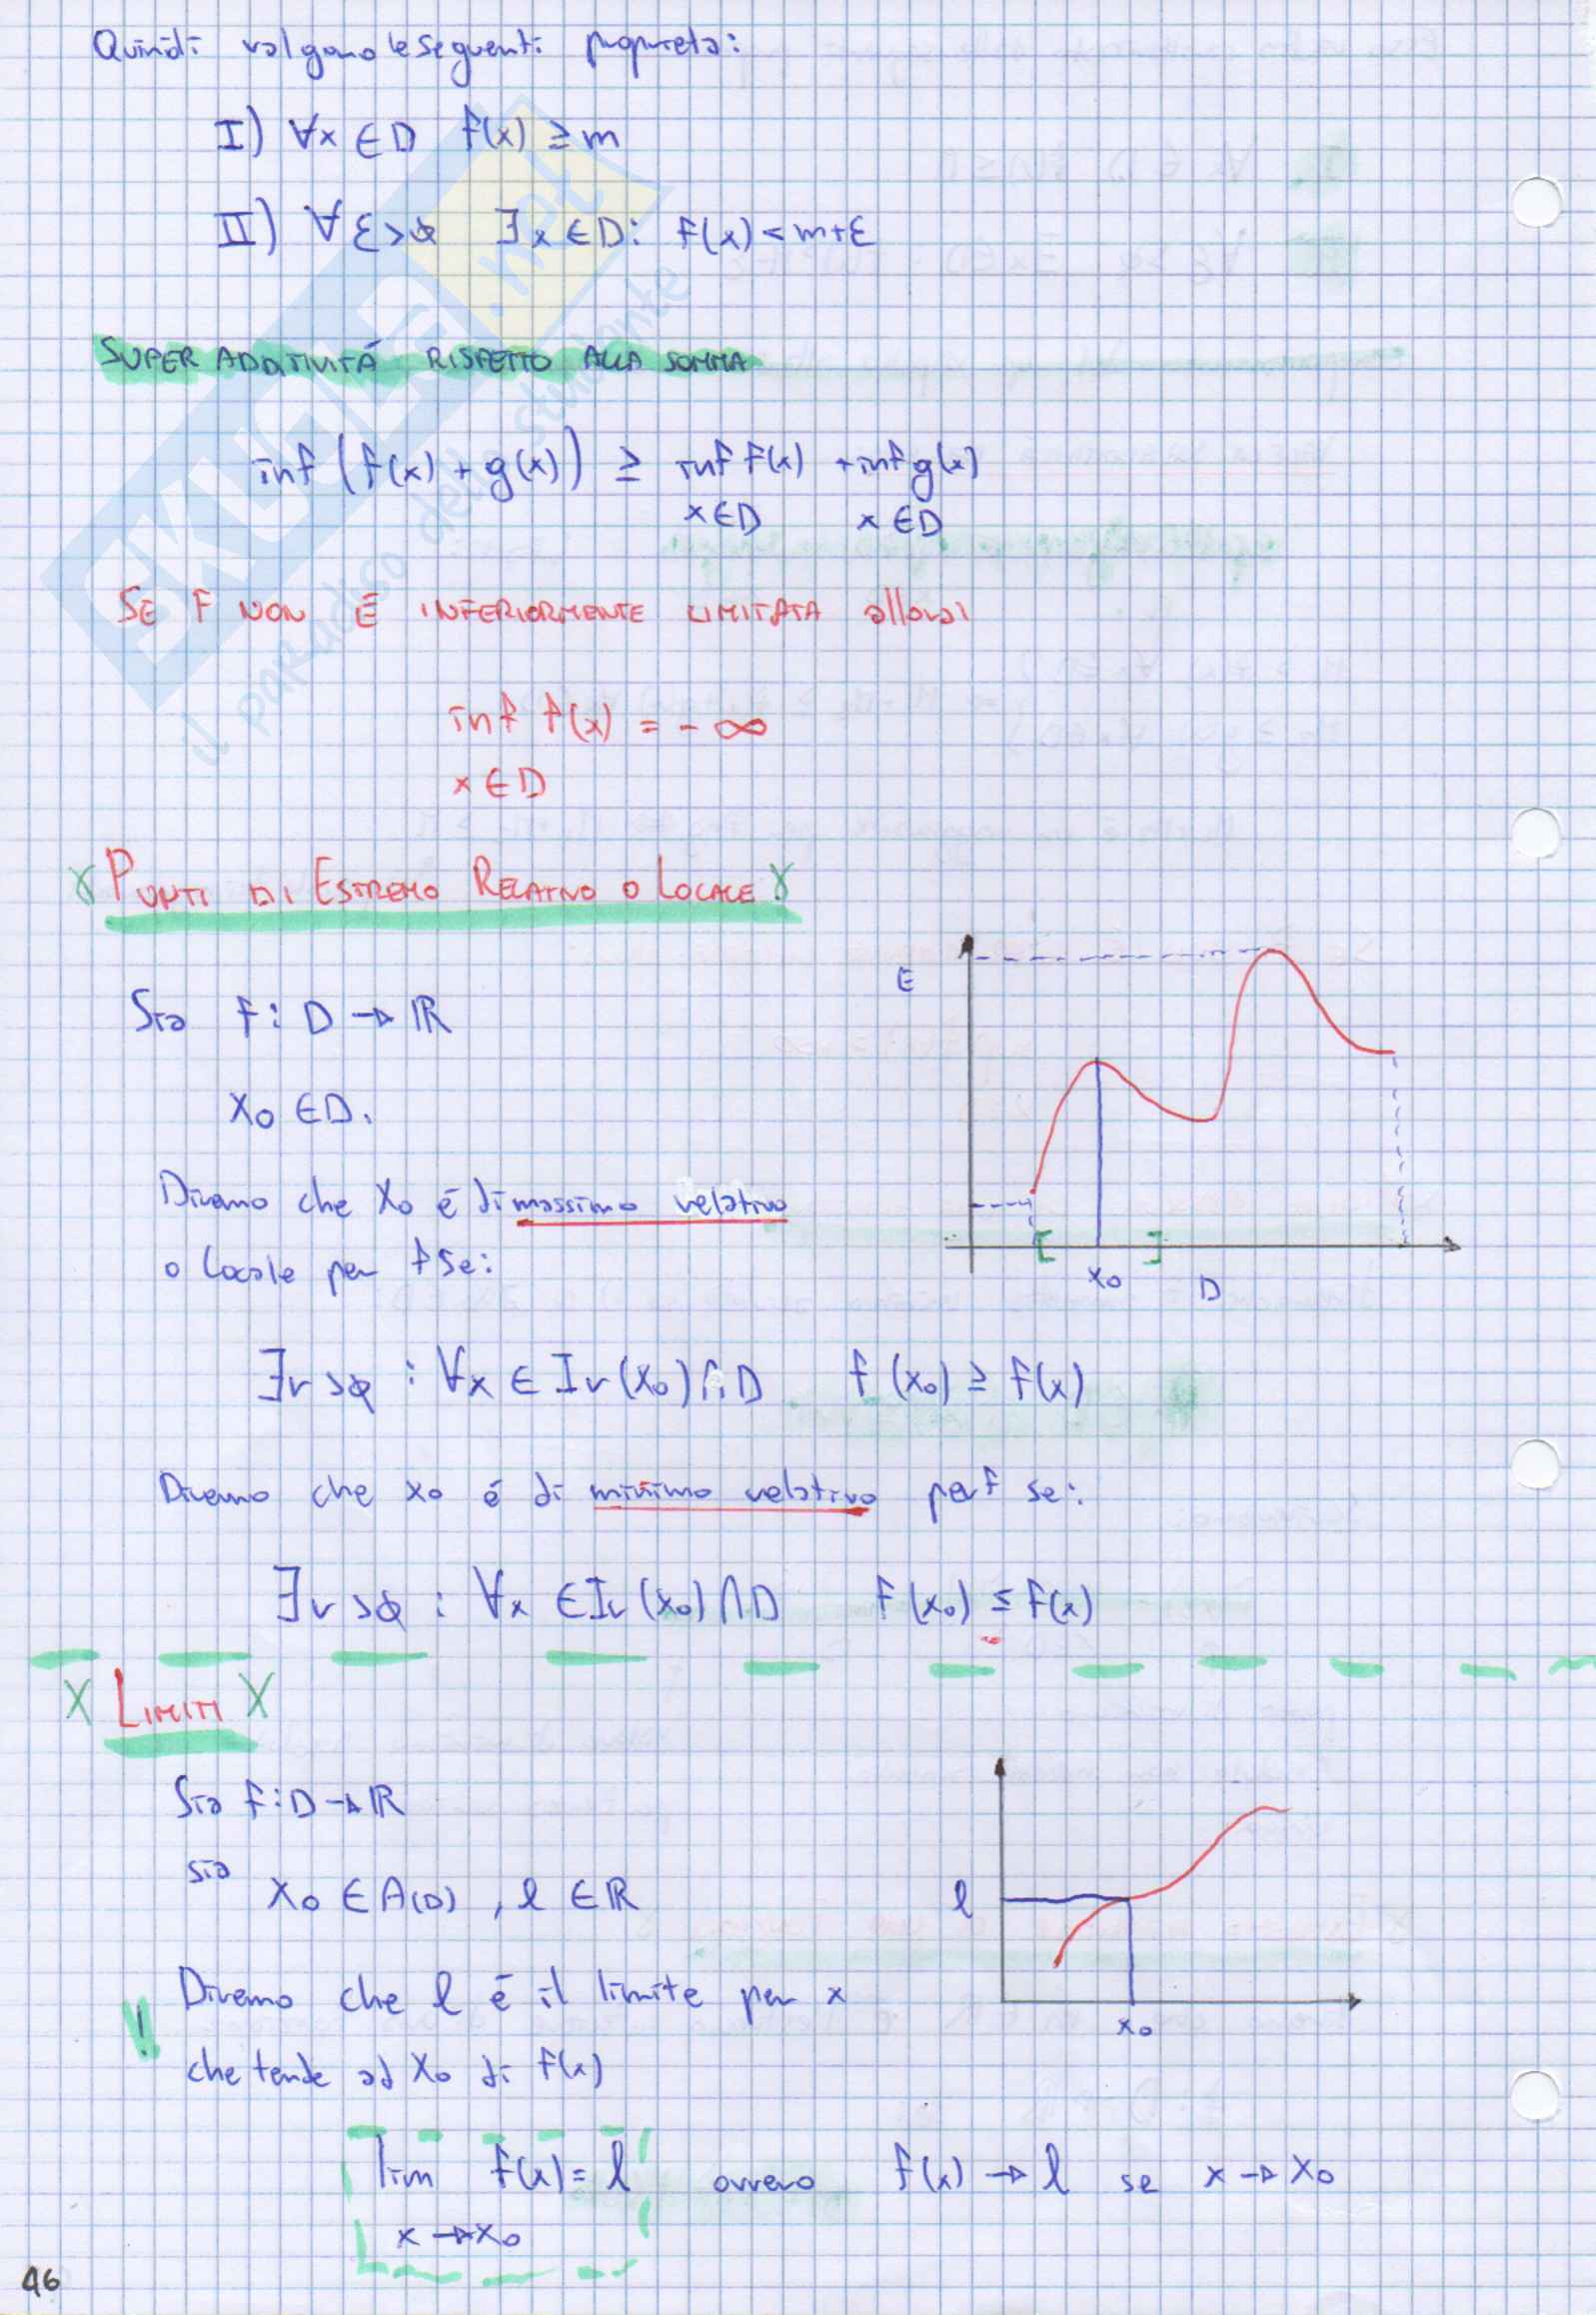 Quindi valgono le seguenti proprietà:
I) ∀x ∈ D f(x) ≥ m
II) ∀ε>0 ∃x ∈ D: f(x) < m+ε
SUPER ADDITIVITÁ RISPETTO ALLA SOMMA
inf (f(x) + g(x)) ≥ inf f(x) + inf g(x)
x∈D x∈D
SE F NON É INFERIORMENTE LIMITATA allora:
inf f(x) = -∞
x∈D
γ PUNTI DI ESTREMO RELATIVO O LOCALE γ
E
Sia f: D → ℝ
x₀ ∈ D.
Diremo che x₀ é di massimo relativo
o locale per f se:
x₀ D
∃r>0 : ∀x ∈ Ir(x₀)∩D f(x₀) ≥ f(x)
Diremo che x₀ é di minimo relativo per f se:
∃r>0 : ∀x ∈ Ir(x₀)∩D f(x₀) ≤ f(x)
X LIMITI X
Sia f: D → ℝ
sia x₀ ∈ A(D), l ∈ ℝ
l
! Diremo che l é il limite per x
che tende ad x₀ di f(x)
x₀
lim f(x) = l ovvero f(x) → l se x → x₀
x → x₀
46
SKUOLA.net
il paradiso dello studente